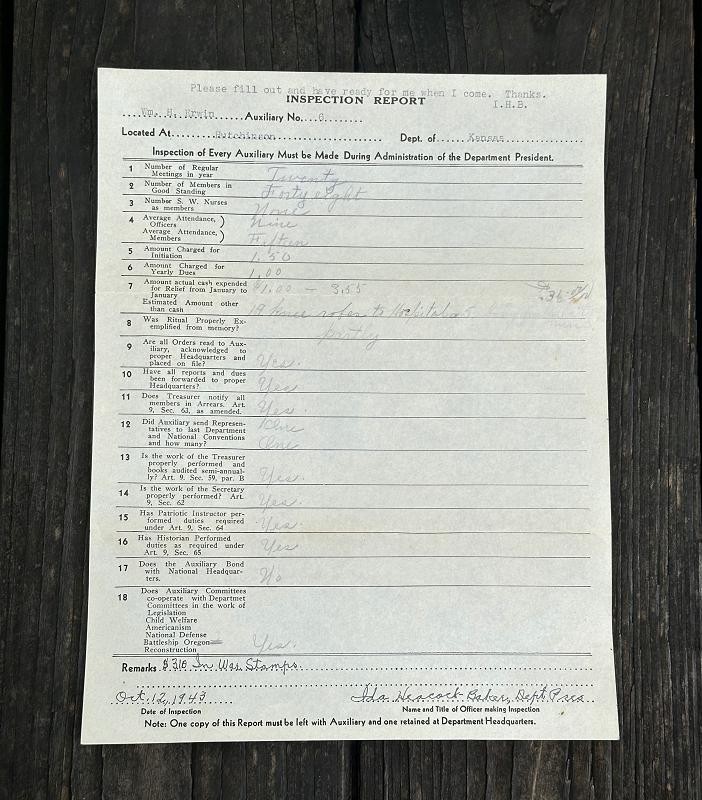 Please fill out and have ready for me when I come. Thanks.
INSPECTION REPORT
I.H.B.
Wm. H. Erwin Auxiliary No. 6
Located At Hutchinson Dept. of Kansas
Inspection of Every Auxiliary Must be Made During Administration of the Department President.
1 Number of Regular
Meetings in year Twenty
2 Number of Members in
Good Standing Forty eight
3 Number S. W. Nurses
as members None
4 Average Attendance,
Officers Nine
Average Attendance,
Members Fifteen
5 Amount Charged for
Initiation 1.50
6 Amount Charged for
Yearly Dues 1.00
7 Amount actual cash expended
for Relief from January to
January $1.00 - 3.55
Estimated Amount other
than cash
8 Was Ritual Properly Ex-
emplified from memory?
9 Are all Orders read to Aux-
iliary, acknowledged to
proper Headquarters and
placed on file? Yes.
10 Have all reports and dues
been forwarded to proper
Headquarters? Yes
11 Does Treasurer notify all
members in Arrears. Art.
9, Sec. 63, as amended. Yes
12 Did Auxiliary send Represen-
tatives to last Department One
and National Conventions
and how many? One
13 Is the work of the Treasurer
properly performed and
books audited semi-annual-
ly? Art. 9. Sec. 59, par. B Yes.
14 Is the work of the Secretary
properly performed? Art.
9, Sec. 62 Yes.
15 Has Patriotic Instructor per-
formed duties required
under Art. 9, Sec. 64 Yes.
16 Has Historian Performed
duties as required under
Art. 9, Sec. 65 Yes
17 Does the Auxiliary Bond
with National Headquar-
ters. No
18 Does Auxiliary Committees
co-operate with Departmet
Committees in the work of
Legislation
Child Welfare
Americanism
National Defense
Battleship Oregon
Reconstruction Yes.
Remarks $310 In War Stamps.
Oct. 12, 1943 Ida Heacock Baker, Dept Pres
Date of Inspection Name and Title of Officer making Inspection
Note: One copy of this Report must be left with Auxiliary and one retained at Department Headquarters.